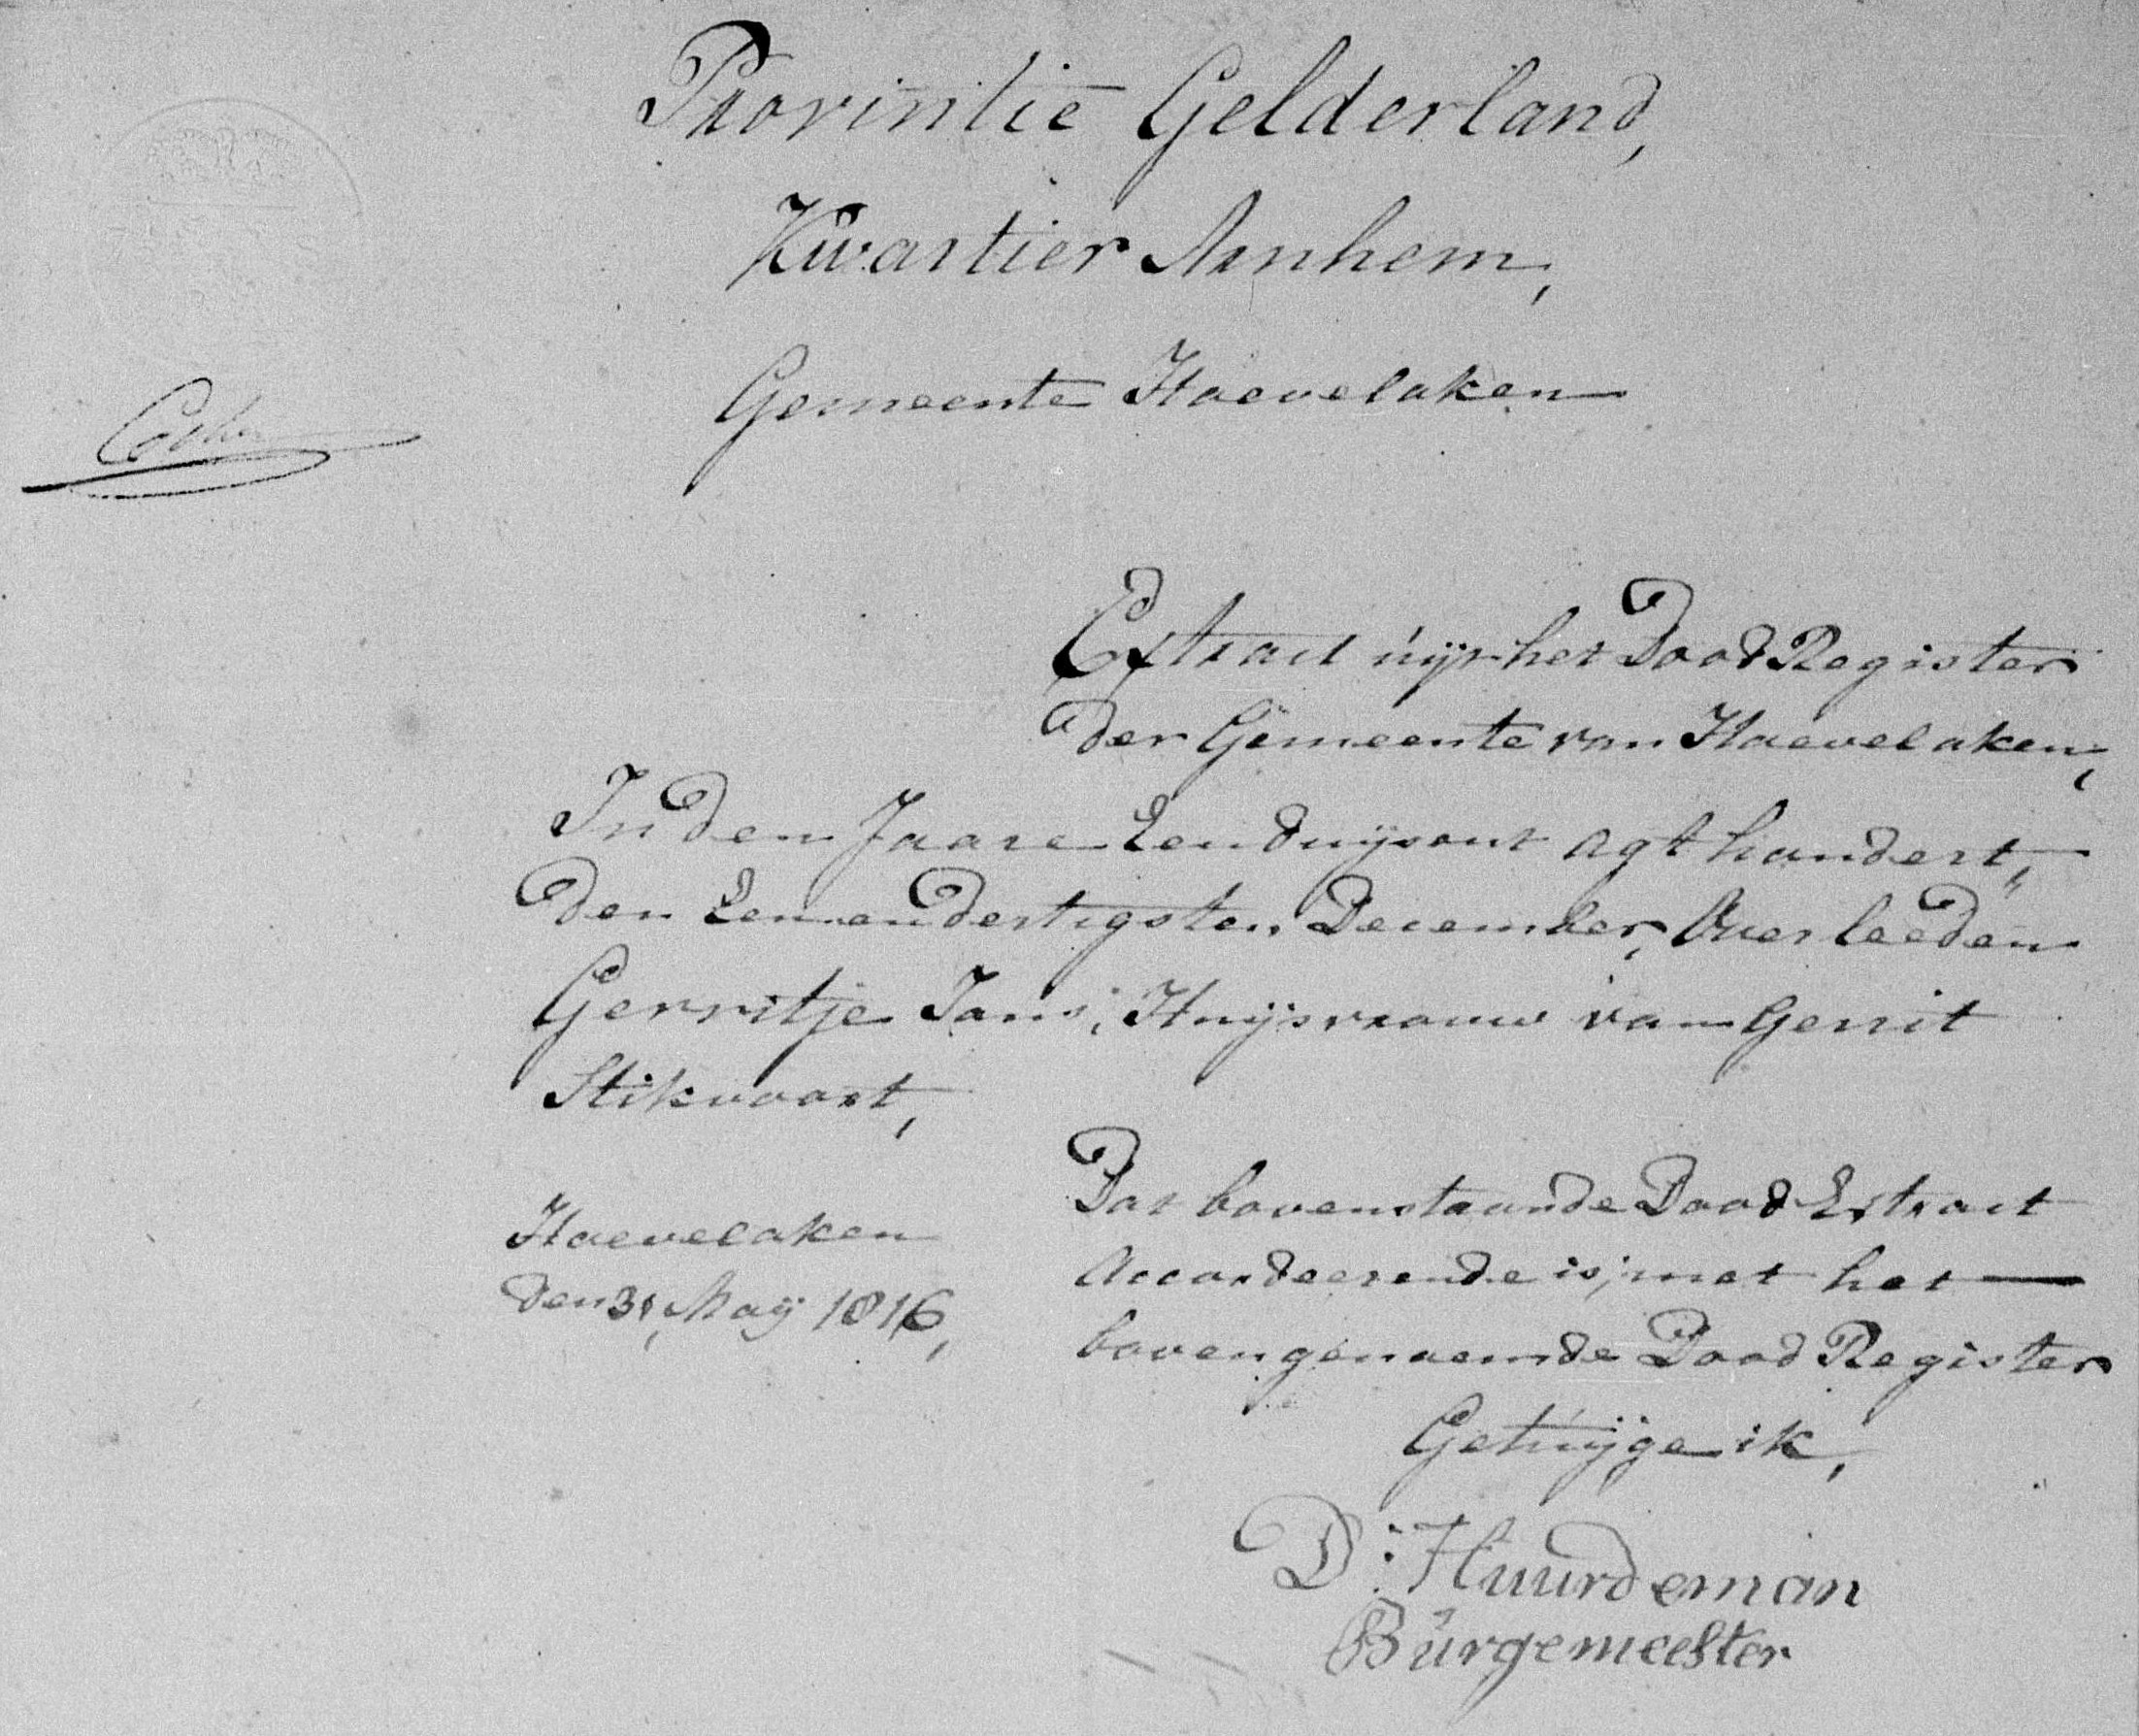 Provintie Gelderland,
Kwartier Arnhem,
Gemeente Haevelaken
Extract úijt het Dood Register
der Gemeente van Haevelaken,
In den Jaare Een duijsent agt hondert,,
den Een en dertigsten December, Overleeden
Gerritje Jans, Huijsvrouw van Gerrit
Stikvoort,
Dat bovenstaande Dood Extract
Accordeerende is, met het
bovengenaemde Dood Register
Getúijge ik,
Haevelaken
den 31, Maij 1816,
D: Huurdeman
Bürgemeester